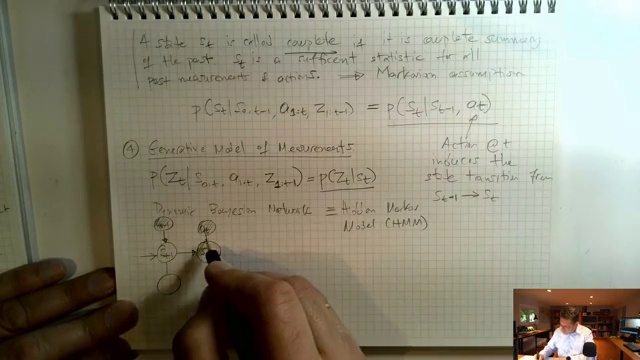 A state St is called complete if it is complete summary
of the past St is a sufficient statistic for all
past measurements & actions. ⟹ Markovian assumption
p(St|S0:t-1, a1:t, z1:t-1) = p(St|St-1, at)
Action @t
induces the
state transition from
St-1 → St
④ Generative Model of Measurements
p(Zt|S0:t, a1:t, Z1:t-1) = p(Zt|St)
Dynamic Bayesian Networks ≡ Hidden Markov
Model (HMM)
at-1 at
St-1